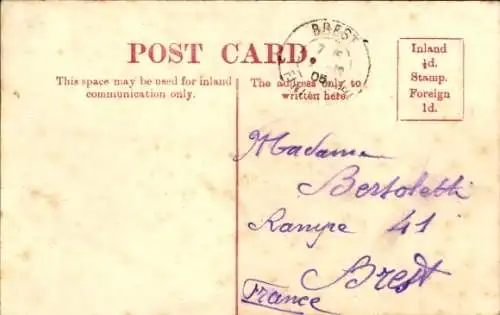 POST CARD.
This space may be used for inland
communication only.
The address only to
written here.
BREST
7
05
Inland
½d.
Stamp.
Foreign
1d.
Madame
Bertoletti
Rampe 41
Brest
France